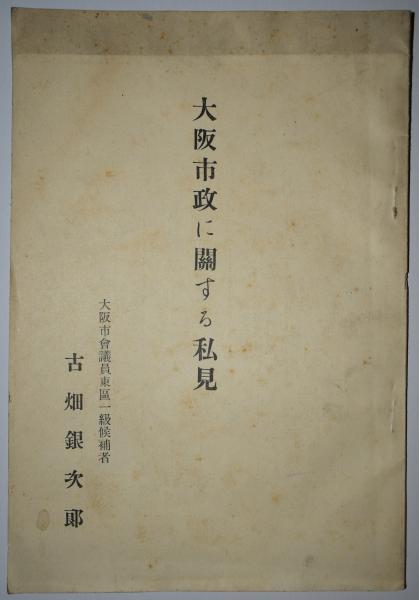 大阪市政に關する私見
大阪市會議員東區一級候補者
古畑銀次郞